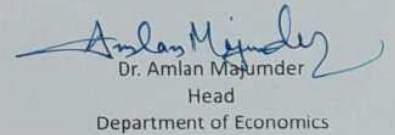 Amlan Majumder
Dr. Amlan Majumder
Head
Department of Economics